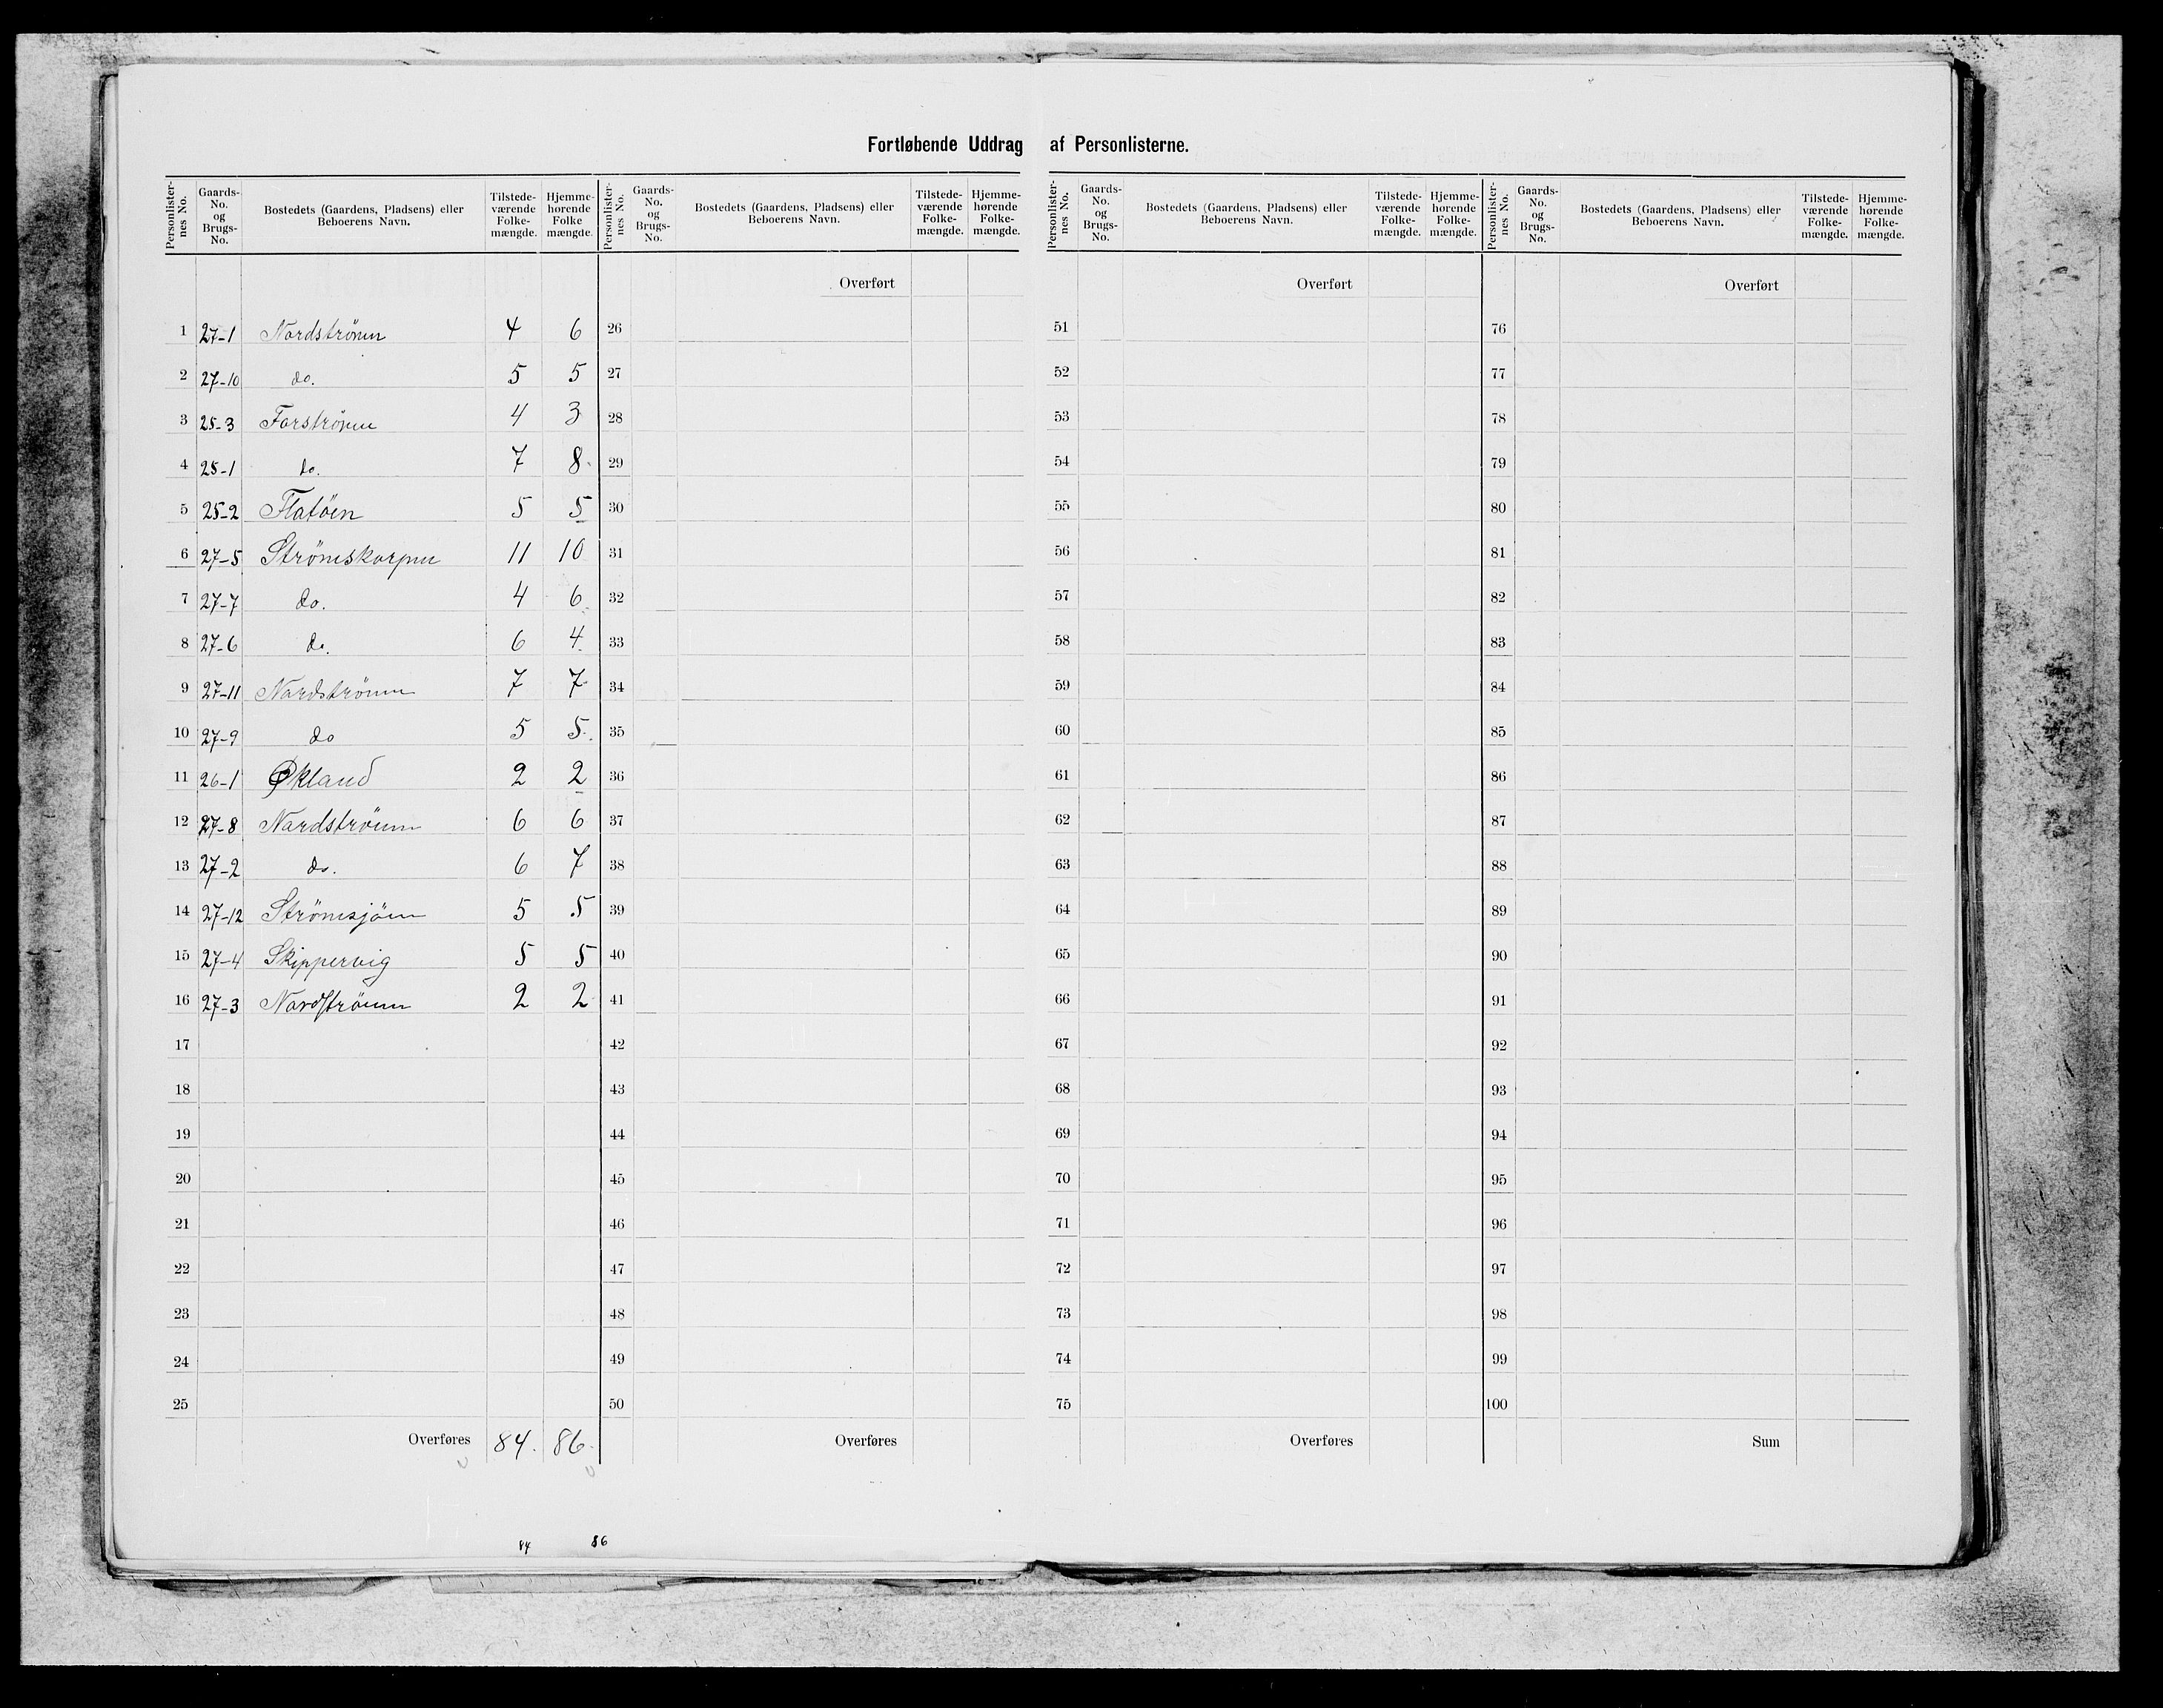 Fortløbende Uddrag af Personlisterne.
Personlister-nes No. | Gaards-No. og Brugs-No. | Bostedets (Gaardens, Pladsens) eller Beboerens Navn. | Tilstede-værende Folke-mængde. | Hjemme-hørende Folke mængde.
1 27-1 Nordströnen 4 6
2 27-10 do. 5 5
3 25-3 Forströnen 4 3
4 25-1 do. 7 8
5 25-2 Flatöen 5 5
6 27-5 Strömskarpen 11 10
7 27-7 do. 4 6
8 27-6 do. 6 4
9 27-11 Nordströnen 7 7
10 27-9 do 5 5
11 26-1 Økland 2 2
12 27-8 Nordströnen 6 6
13 27-2 do. 6 7
14 27-12 Strömsjöen 5 5
15 27-4 Skippervig 5 5
16 27-3 Nordströnen 2 2
17
18
19
20
21
22
23
24
25
Overføres 84. 86
84 86
Personlister-nes No. | Gaards-No. og Brugs-No. | Bostedets (Gaardens, Pladsens) eller Beboerens Navn. | Tilstede-værende Folke-mængde. | Hjemme-hørende Folke-mængde.
Overført
26
27
28
29
30
31
32
33
34
35
36
37
38
39
40
41
42
43
44
45
46
47
48
49
50
Overføres
Personlister-nes No. | Gaards-No. og Brugs-No. | Bostedets (Gaardens, Pladsens) eller Beboerens Navn. | Tilstede-værende Folke-mængde. | Hjemme-hørende Folke-mængde.
Overført
51
52
53
54
55
56
57
58
59
60
61
62
63
64
65
66
67
68
69
70
71
72
73
74
75
Overføres
Personlister-nes No. | Gaards-No. og Brugs-No. | Bostedets (Gaardens, Pladsens) eller Beboerens Navn. | Tilstede-værende Folke-mængde. | Hjemme-hørende Folke-mængde.
Overført
76
77
78
79
80
81
82
83
84
85
86
87
88
89
90
91
92
93
94
95
96
97
98
99
100
Sum